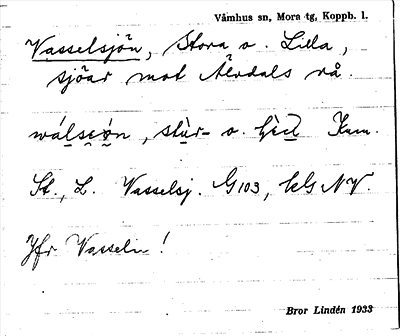 Våmhus sn, Mora tg, Koppb. l.
Vasselsjön, Stora o. Lilla,
sjöar mot Älvdals rå.
stùr- o. Kum.
St., L. Vasselsj. G103, kls NV.
Jfr Vasseln!
Bror Lindén 1933